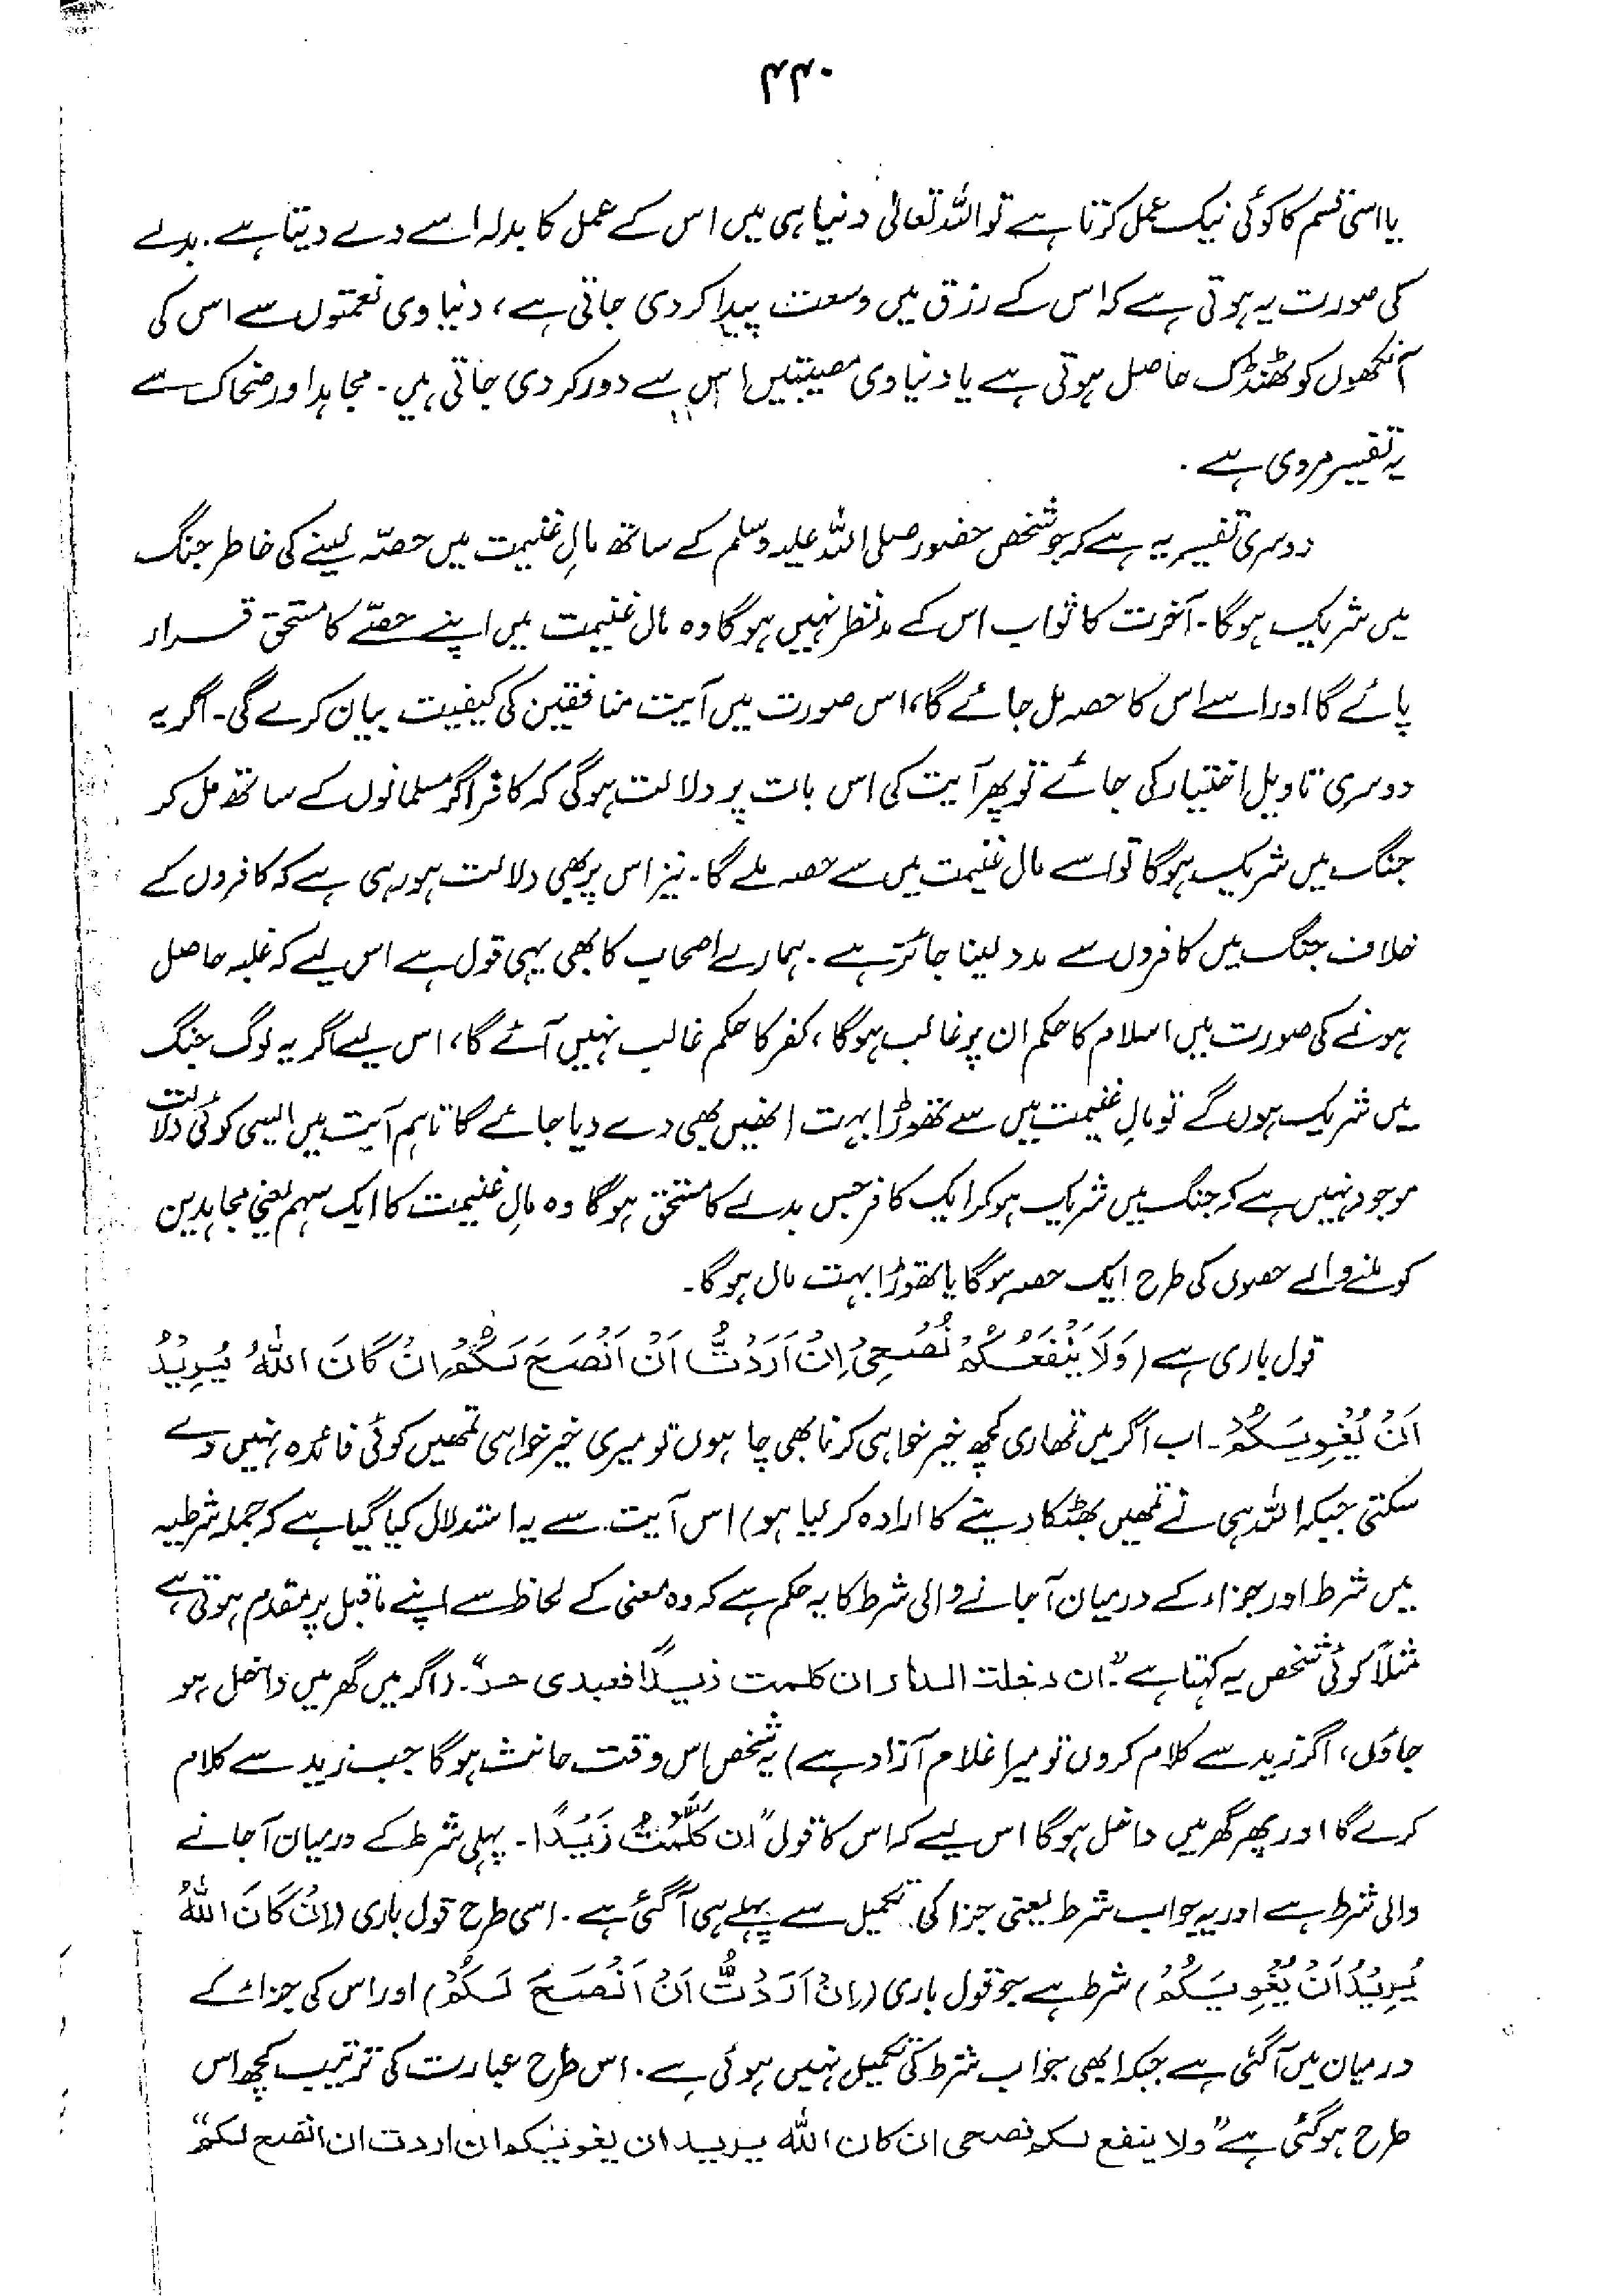 ۴۴۰
یا اسی قسم کا کوئی نیک عمل کرتا ہے تو اللہ تعالیٰ دنیا ہی میں اس کے عمل کا بدلہ اسے دے دیتا ہے۔ بدلے
کی صورت یہ ہوتی ہے کہ اس کے رزق میں وسعت پیدا کر دی جاتی ہے، دنیاوی نعمتوں سے اس کی
آنکھوں کو ٹھنڈک حاصل ہوتی ہے یا دنیاوی مصیبتیں اس سے دور کر دی جاتی ہیں۔ مجاہد اور ضحاک سے
یہ تفسیر مروی ہے۔
دوسری تفسیر یہ ہے کہ جو شخص حضور صلی اللہ علیہ وسلم کے ساتھ مالِ غنیمت میں حصّہ لینے کی خاطر جنگ
میں شریک ہوگا۔ آخرت کا ثواب اس کے مدنظر نہیں ہوگا وہ مال غنیمت میں اپنے حصّے کا مستحق قرار
پائے گا اور اسے اس کا حصہ مل جائے گا، اس صورت میں آیت منافقین کی کیفیت بیان کرے گی۔ اگر یہ
دوسری تاویل اختیار کی جائے تو پھر آیت کی اس بات پر دلالت ہوگی کہ کافر اگر مسلمانوں کے ساتھ مل کر
جنگ میں شریک ہوگا تو اسے مال غنیمت میں سے حصہ ملے گا۔ نیز اس پر بھی دلالت ہو رہی ہے کہ کافروں کے
خلاف جنگ میں کافروں سے مدد لینا جائز ہے۔ ہمارے اصحاب کا بھی یہی قول ہے اس لیے کہ غلبہ حاصل
ہونے کی صورت میں اسلام کا حکم ان پر غالب ہوگا، کفر کا حکم غالب نہیں آئے گا، اس لیے اگر یہ لوگ جنگ
میں شریک ہوں گے تو مالِ غنیمت میں سے تھوڑا بہت انھیں بھی دے دیا جائے گا تاہم آیت میں ایسی کوئی دلالت
موجود نہیں ہے کہ جنگ میں شریک ہو کر ایک کافر جس بدلے کا مستحق ہوگا وہ مالِ غنیمت کا ایک سہم یعنی مجاہدین
کو ملنے والے حصوں کی طرح ایک حصہ ہوگا یا تھوڑا بہت مال ہوگا۔
قول باری ہے (وَلَا يَنْفَعُكُمْ نُصْحِيْ اِنْ اَرَدْتُّ اَنْ اَنْصَحَ لَكُمْ اِنْ كَانَ اللّٰهُ يُرِيْدُ
اَنْ يُّغْوِيَكُمْ۔ اب اگر میں تمھاری کچھ خیر خواہی کرنا بھی چاہوں تو میری خیر خواہی تمھیں کوئی فائدہ نہیں دے
سکتی جبکہ اللہ ہی نے تمھیں بھٹکا دینے کا ارادہ کر لیا ہو) اس آیت سے یہ استدلال کیا گیا ہے کہ جملہ شرطیہ
میں شرط اور جزاء کے درمیان آجانے والی شرط کا یہ حکم ہے کہ وہ معنی کے لحاظ سے اپنے ماقبل پر مقدم ہوتی ہے
مثلاً کوئی شخص یہ کہتا ہے "ان دخلت الدار ان كلمت زيدًا فعبدی حر"۔ (اگر میں گھر میں داخل ہو
جاؤں، اگر زید سے کلام کروں تو میرا غلام آزاد ہے) یہ شخص اس وقت حانث ہوگا جب زید سے کلام
کرے گا اور پھر گھر میں داخل ہوگا اس لیے کہ اس کا قول "ان كَلَّمْتُ زَيْدًا۔ پہلی شرط کے درمیان آجانے
والی شرط ہے اور یہ جواب شرط یعنی جزا کی تکمیل سے پہلے ہی آگئی ہے۔ اسی طرح قول باری (اِنْ كَانَ اللّٰهُ
يُرِيْدُ اَنْ يُّغْوِيَكُمْ) شرط ہے جو قول باری (اِنْ اَرَدْتُّ اَنْ اَنْصَحَ لَكُمْ) اور اس کی جزاء کے
درمیان میں آگئی ہے جبکہ ابھی جواب شرط کی تکمیل نہیں ہوئی ہے۔ اس طرح عبارت کی ترتیب کچھ اس
طرح ہوگئی ہے "ولا ينفع لكم نصحی ان كان اللّٰه يريد ان يغويكم ان اردت ان انصح لكم"